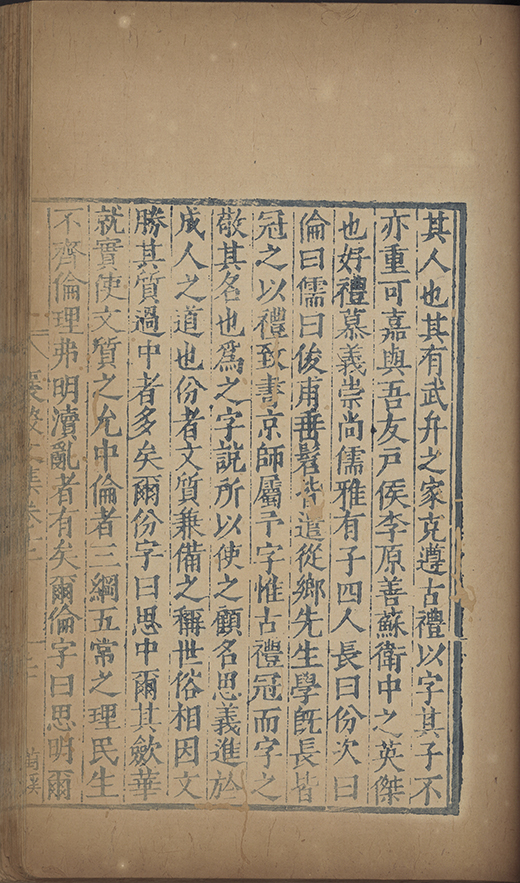 其人也其有武弁之家克遵古禮以字其子不
亦重可嘉與吾友戸侯李原善蘇衛中之英傑
也好禮慕義崇尚儒雅有子四人長曰份次曰
倫曰儒曰俊甫垂髫皆遣從鄉先生學旣長皆
冠之以禮致書京師屬予字惟古禮冠而字之
敬其名也爲之字說所以使之顧名思義進於
成人之道也份者文質兼備之稱世俗相因文
勝其質過中者多矣爾份字曰思中爾其歛華
就實使文質之允中倫者三綱五常之理民生
不齊倫理弗明瀆亂者有矣爾倫字曰思明爾